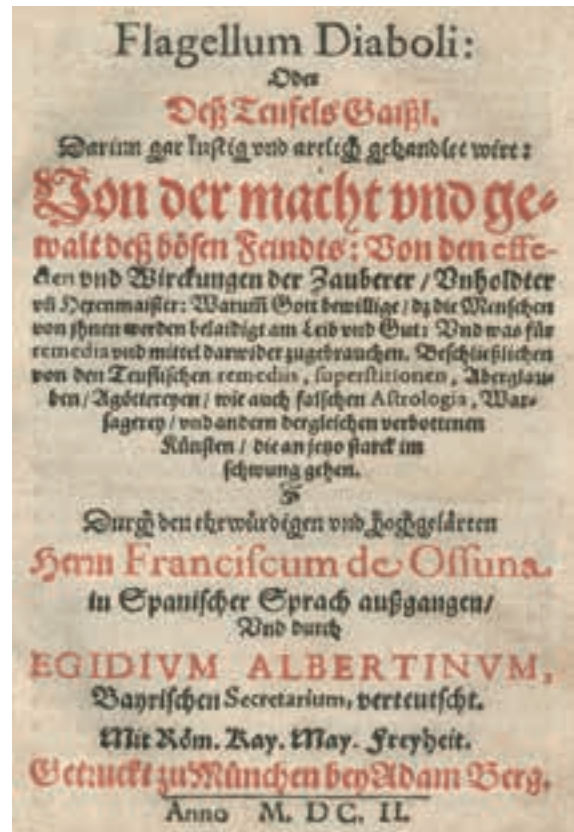 Flagellum Diaboli:
Oder
Deß Teufels Gaißl.
Darinn gar lustig vnd artlich gehandlet wirt:
Von der macht vnd ge-
walt deß bösen Feindts: Von den effe-
cten vnd Wirckungen der Zauberer / Vnholdter
vñ Hexenmaister: Warumb Gott bewillige / dz die Menschen
von jhnen werden belaidigt am Leib vnd Gut: Vnd was für
remedia vnd mittel darwider zugebrauchen. Beschließlichen
von den Teuflischen remediis, superstitionen, Aberglau-
ben / Agöttereyen / wie auch falschen Astrologia, War-
sagerey / vnd andern dergleichen verbottenen
Künsten / die an jetzo starck im
schwung gehen.
Durch den ehrwürdigen vnd hochgelärten
Herrn Franciscum de Ossuna.
in Spanischer Sprach außgangen /
Vnd durch
EGIDIVM ALBERTINVM,
Bayrischen Secretarium, verteutscht.
Mit Röm. Kay. May. Freyheit.
Getruckt zu München bey Adam Berg.
Anno M. DC. II.